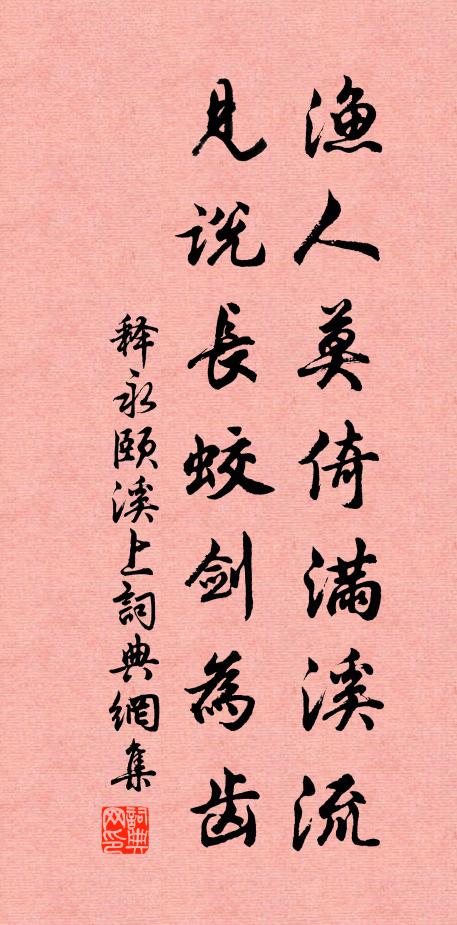 渔人莫倚满溪流
见说長蛟剑為齿
释永颐溪上詞典網集
詞典网印